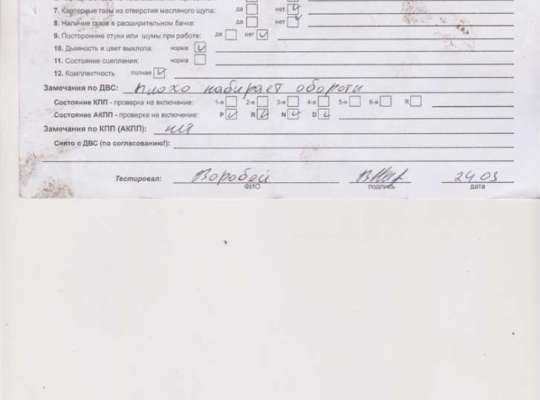 7. Картерные газы из отверстия масляного щупа: да нет
8. Наличие газов в расширительном бачке: да нет
9. Посторонние стуки или шумы при работе: да нет
10. Дымность и цвет выхлопа: норма
11. Состояние сцепления: норма
12. Комплектность полная
Замечания по ДВС: плохо набирает обороты
Состояние КПП - проверка на включение: 1-я 2-я 3-я 4-я 5-я 6-я R
Состояние АКПП - проверка на включение: P R N D
Замечания по КПП (АКПП):
Снято с ДВС (по согласованию!):
Тестировал: Воробей 24.03
ФИО подпись дата